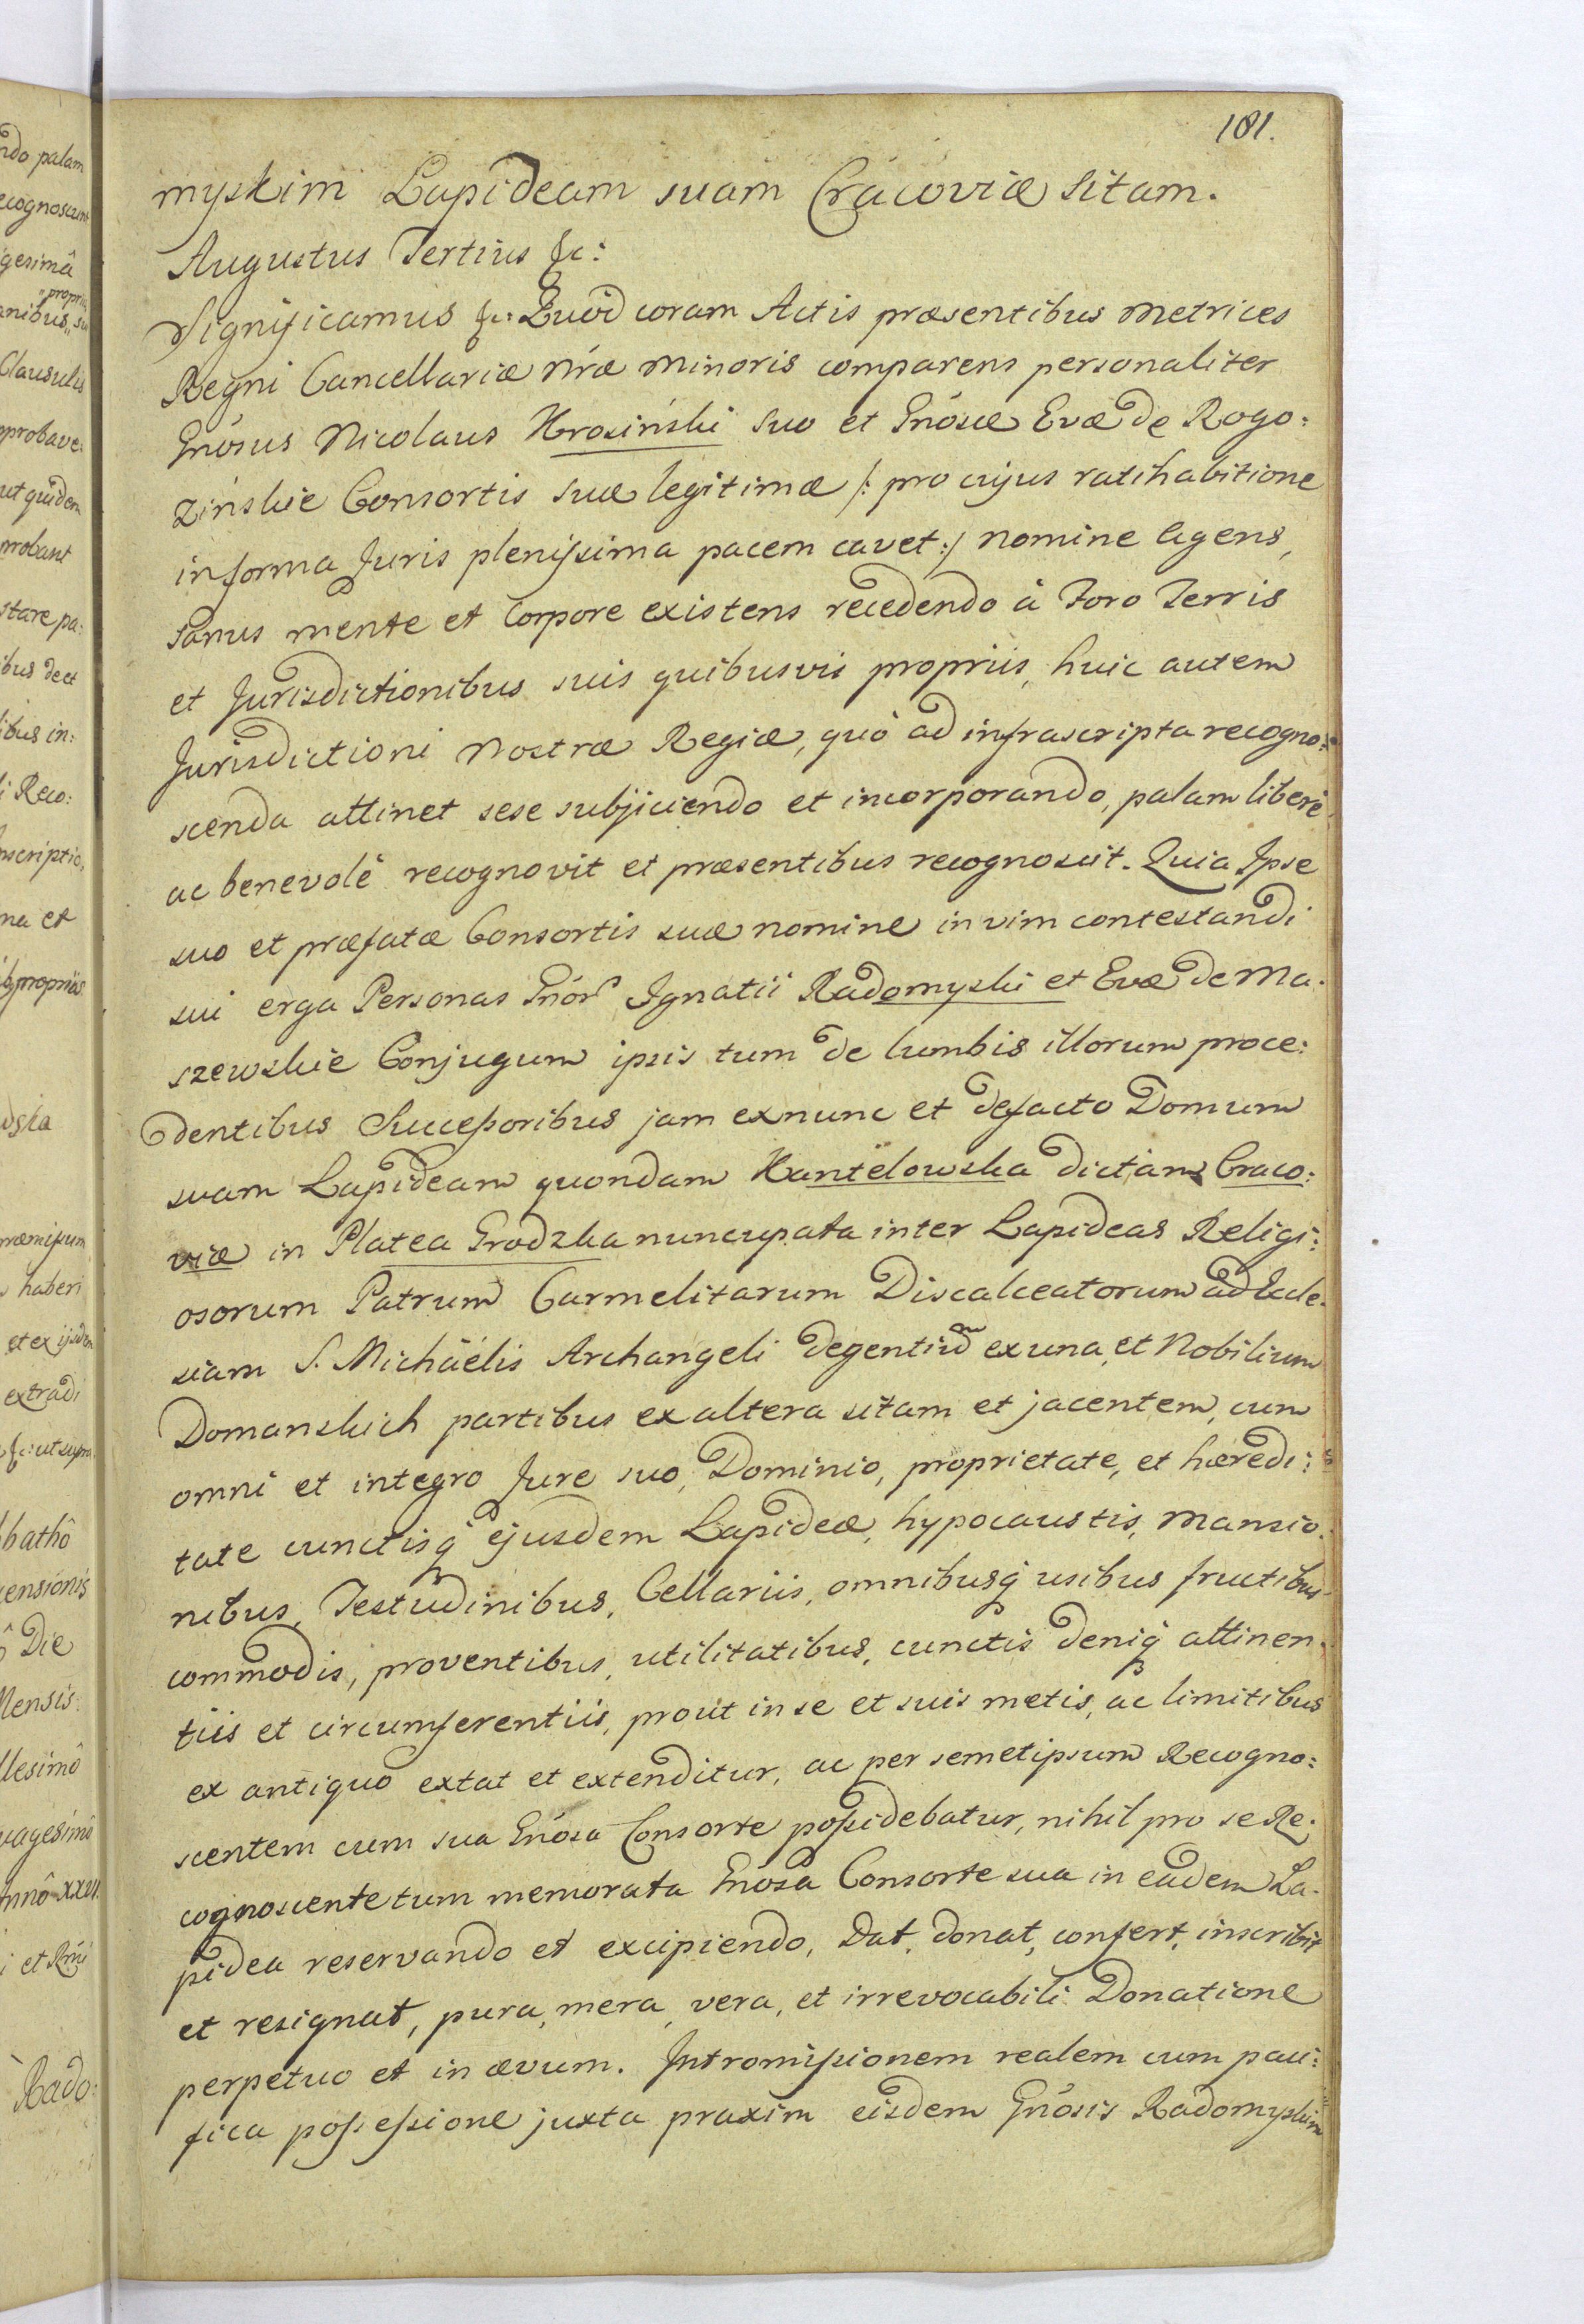 181.
myskim Lapideam suam Cracoviæ sitam.
Augustus Tertius &c:
Significamus &c: Quod coram Actis præsentibus Metrices
Regni Cancellariæ Nræ Minoris comparens personaliter
Gnosus Nicolaus Krosiński suo et Gnosæ Evæ de Rogo:
zińskie Consortis suæ legitimæ /: pro cujus ratihabitione
in forma Juris plenissima pacem cavet :/ nomine agens,
sanus mente et Corpore existens recedendo à Foro Terris
et Jurisdictionibus suis quibusvis propriis, huic autem
Jurisdictioni Nostræ Regiæ, quò ad infrascripta recogno:
scenda attinet sese subjiciendo et incorporando, palam liberè
ac benevolè recognovit et præsentibus recognoscit. Quia Ipse
suo et præfatæ Consortis suæ nomine in vim contestandi
sui erga Personas Gnor Ignatii Radomyski et Evæ de Ma.
szewskie Conjugum ipsis tum de lumbis illorum proce:
dentibus Successoribus jam exnunc et defacto Domum
suam Lapideam quondam Kantelowska dictam Craco:
viæ in Platea Grodzka nuncupata inter Lapideas Religi:
osorum Patrum Carmelitarum Discalceatorum ad Eccle.
siam S. Michäelis Archangeli degentium ex una, et Nobilium
Domanskich partibus ex altera sitam et jacentem, cum
omni et integro Jure suo, Dominio, proprietate, et hæredi:
tate cunctisq ejusdem Lapideæ, hypocaustis, Mansio.
nibus, Testudinibus, Cellariis, omnibusq usibus fructibus
commodis, proventibus, utilitatibus, cunctis deniq attinen.
tiis et circumferentiis, prout in se et suis metis, ac limitibus
ex antiquo extat et extenditur, ac per semetipsum Recogno:
scentem cum sua Gnosa Consorte possidebatur, nihil pro se Re:
cognoscente tum memorata Gnosa Consorte sua in eadem La.
pidea reservando et excipiendo, Dat, donat, confert, inscribit
et resignat, pura, mera, vera, et irrevocabili Donatione
perpetuo et in ævum. Intromissionem realem cum paci:
fica possessione juxta praxim eisdem Gnosis Radomyskim